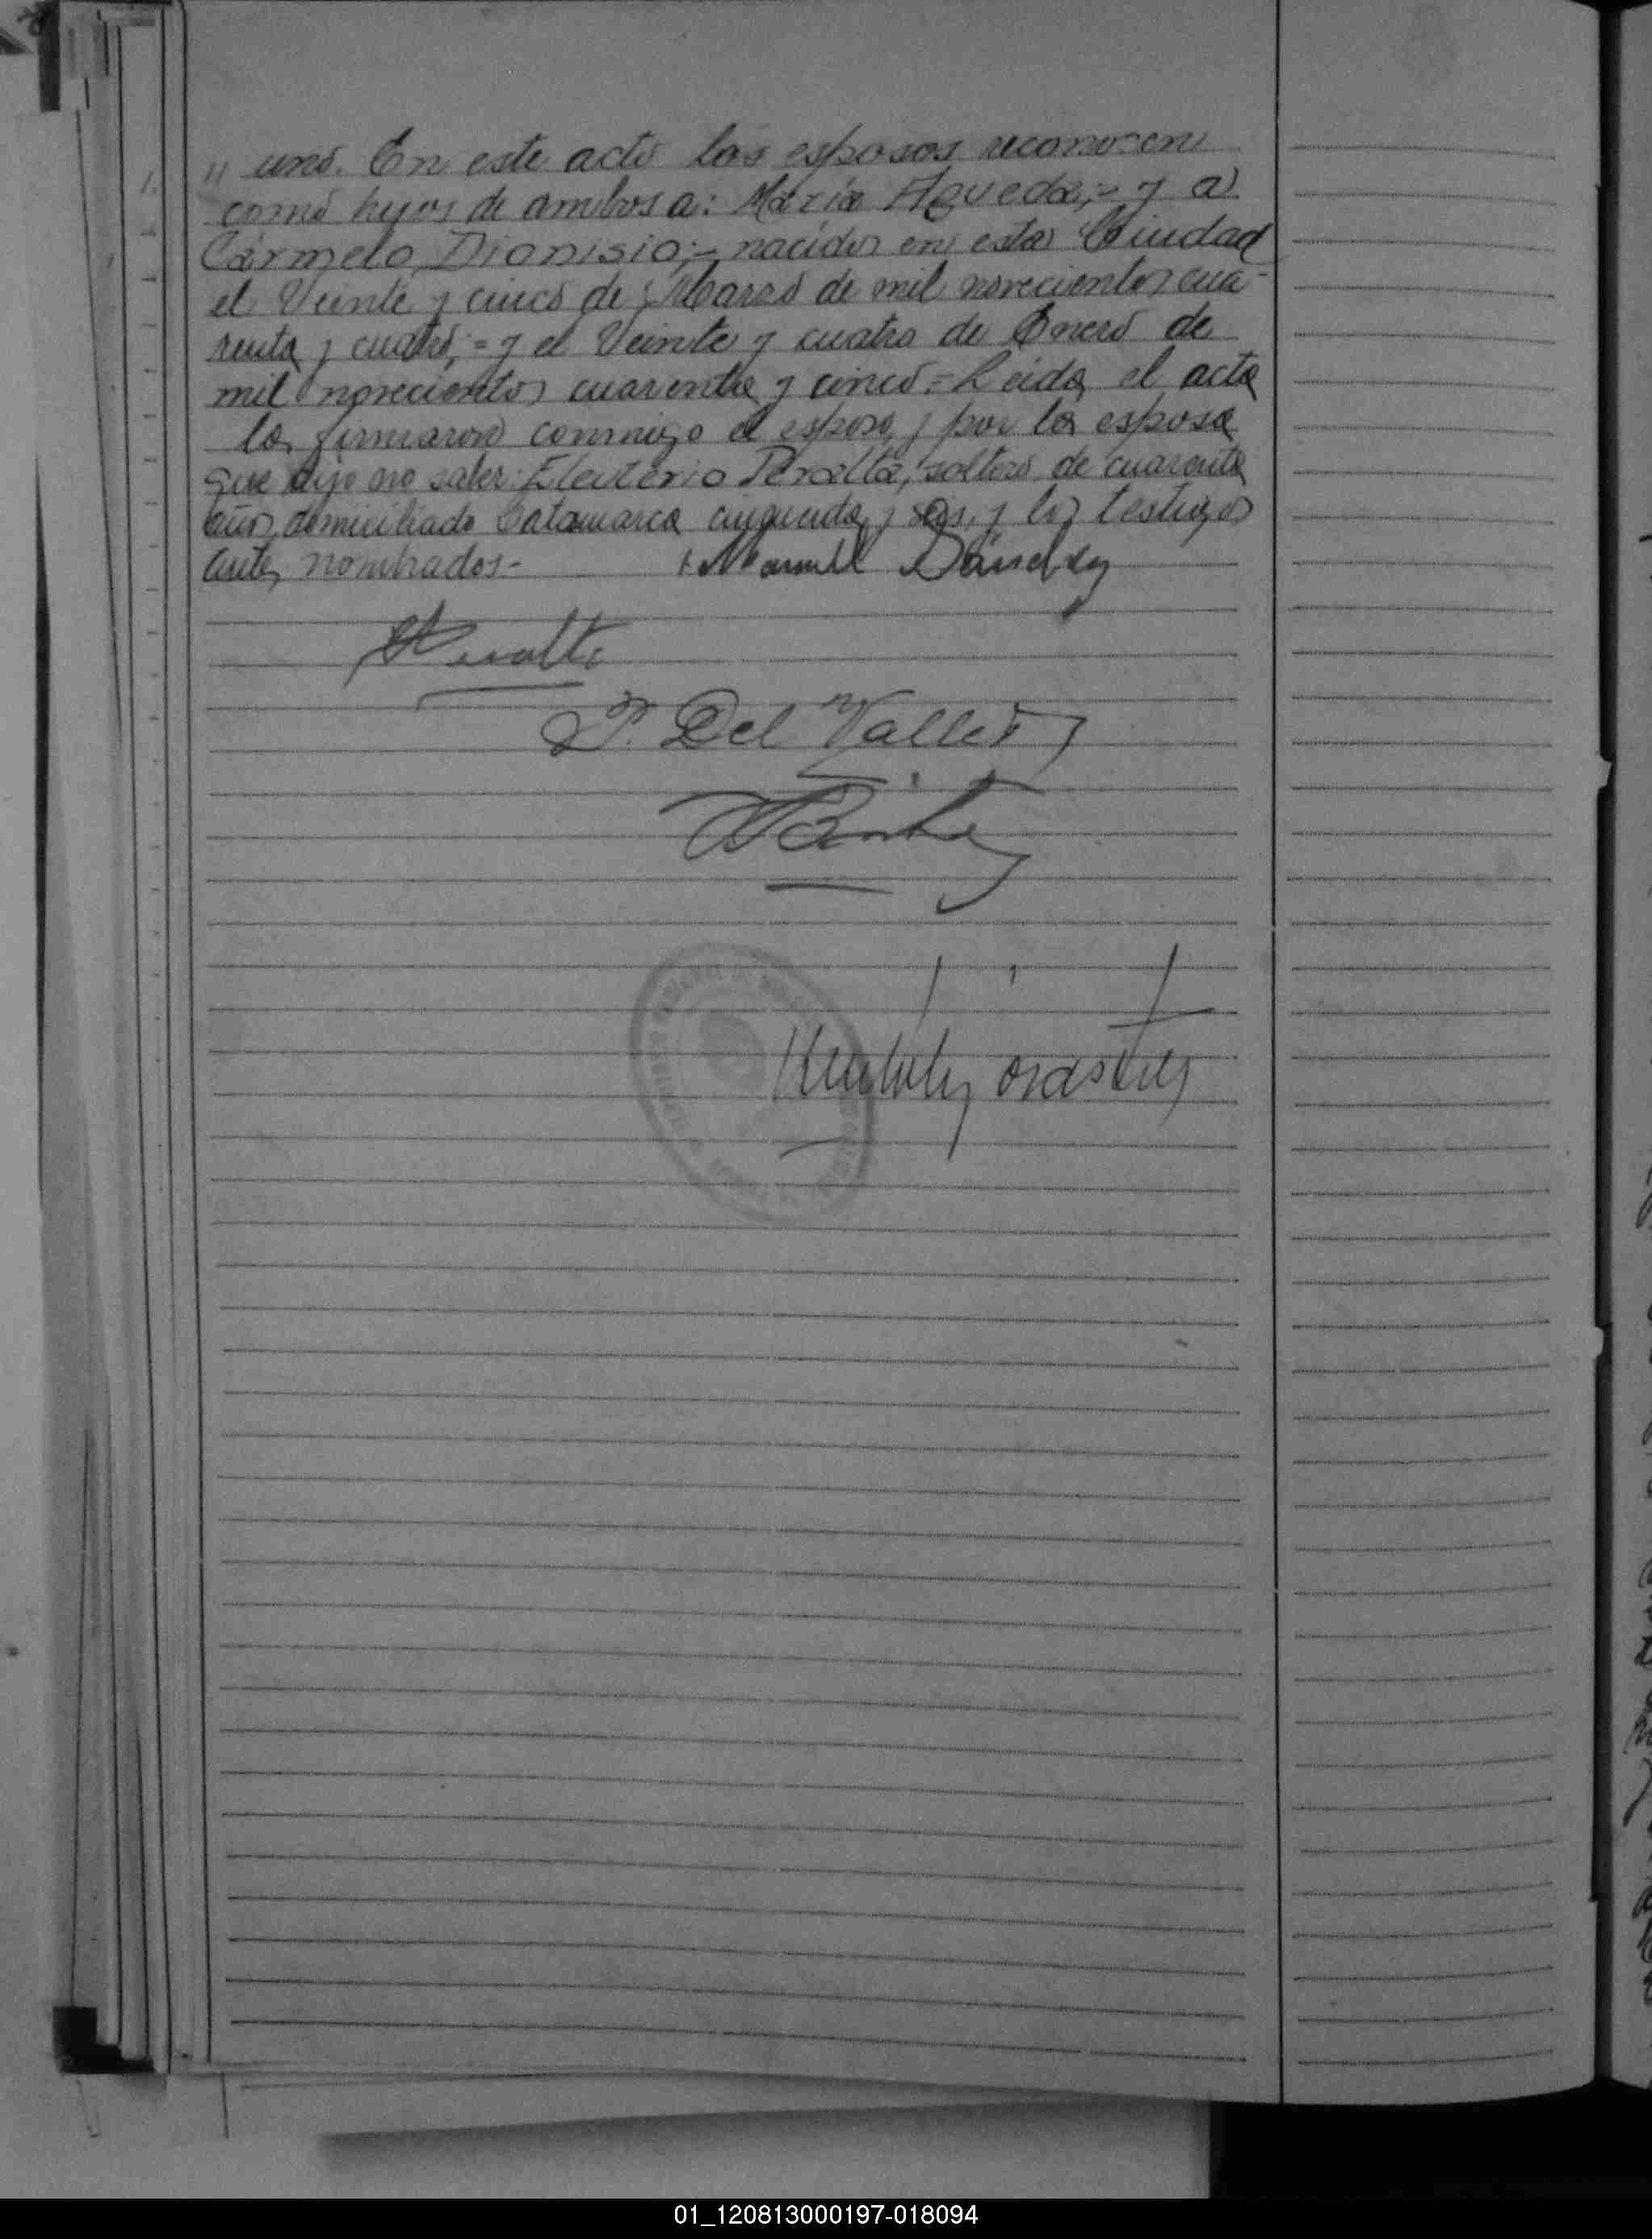 " uno. En este acto los esposos reconocen
como hijos de ambos a: María Agueda;- y a
Cármelo Dionisio;- nacidos en esta Ciudad
el Veinte y cinco de Marzo de mil novecientos cua-
renta y cuatro;= y el Veinte y cuatro de Enero de
mil novecientos cuarenta y cinco = Leída el acta
la firmaron conmigo el esposo, y por la esposa
que dijo no saber: Eleuterio Peralta, soltero de cuarenta
años, domiciliado Catamarca cincuenta y seis, y los testigos
antes nombrados.- Manuel Sánchez
Peralta
P. Del Valle
01_120813000197-018094